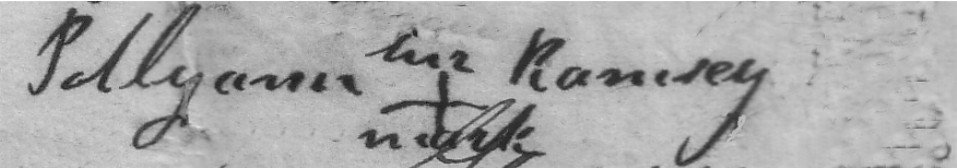 Pollyann her Ramsey
mark